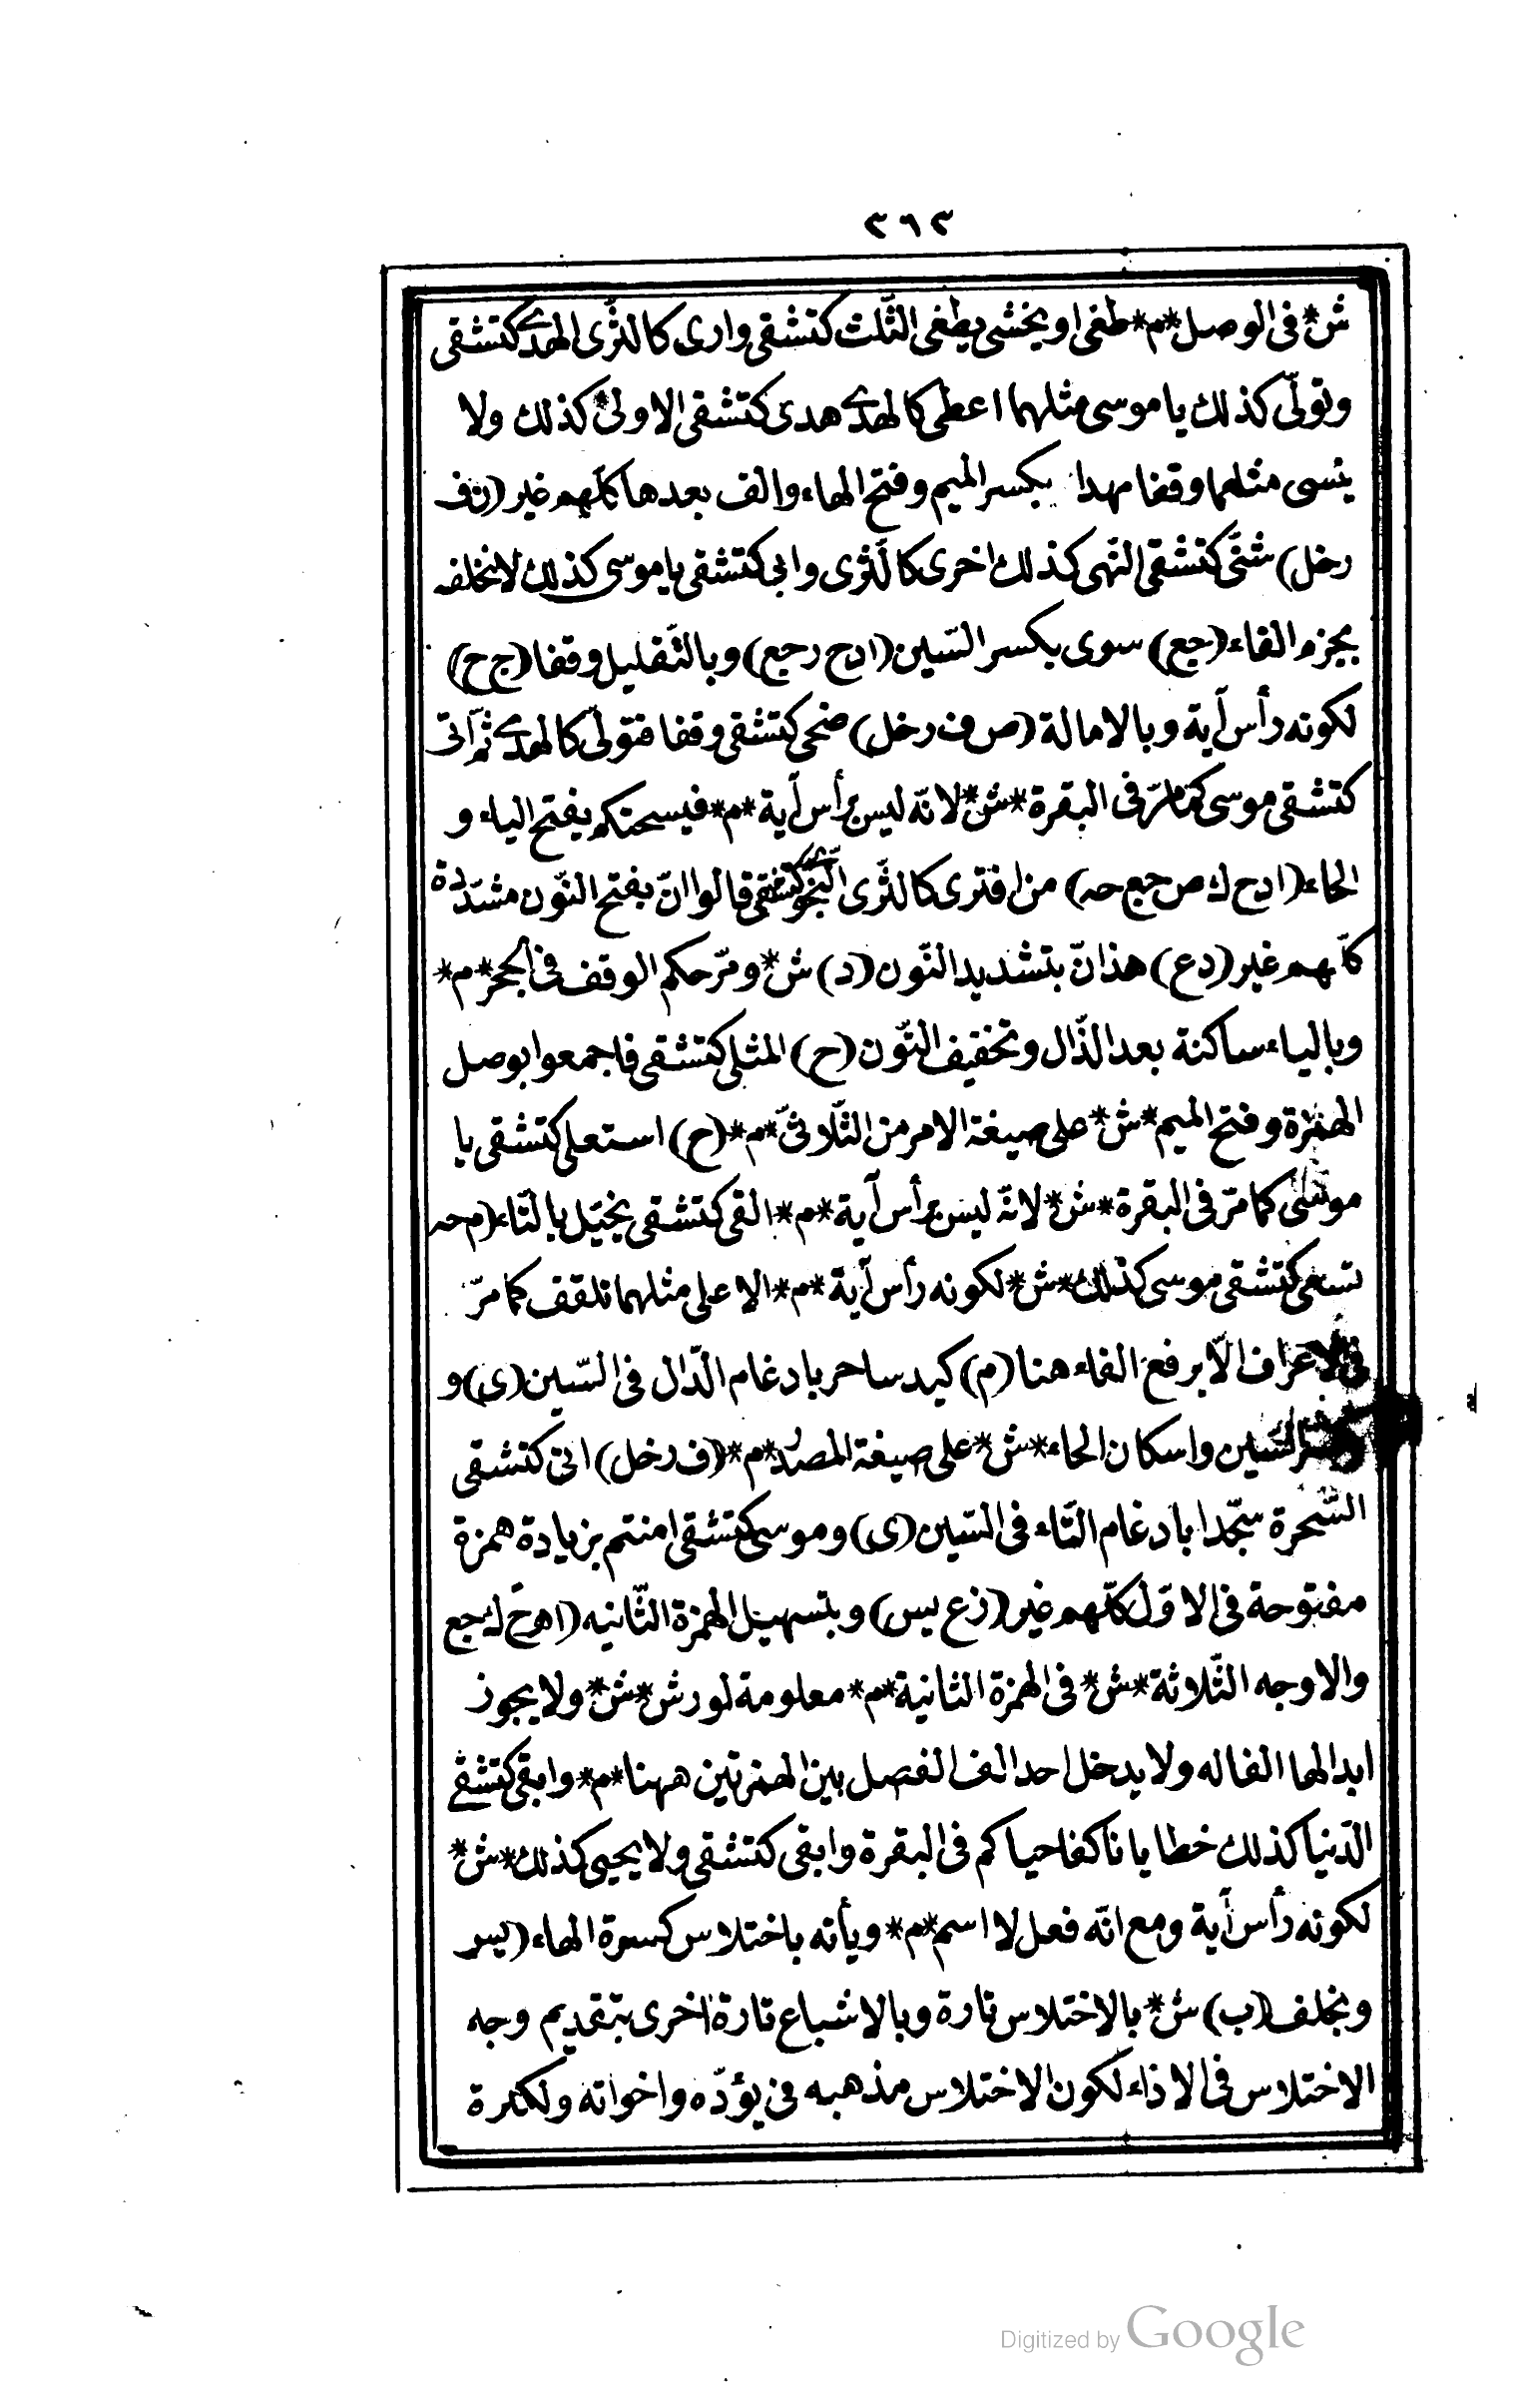 ٢٦٢
ش* فى الوصل*م* طغى او يخشى يطغى الثّلث كتشقى وارى كالثّرى الهدى كتشقى
وتولّى كذلك يا موسى مثلهما اعطى كالهدى هدى كتشقى الاولى كذلك ولا
ينسى مثلهما وقفا مهدا بكسر الميم وفتح الهاء والف بعدها كلّهم غير (ن ف
رخل) شتّى كتشقى النّهى كذلك اخرى كالثّرى وابى كتشقى يا موسى كذلك لا نخلفه
بجزم الفاء (جع) سوى بكسر السّين (ا د ح ر جع) وبالتّقليل وقفا (ج ح)
لكونه رأس آية وبالامالة (ص ف رخل) ضحى كتشقى وقفا فتولّى كالهدى ثمّ اتى
كتشقى موسى كما مرّ فى البقرة*ش* لانّه ليس برأس آية*م* فيسحتكم بفتح الياء و
الحاء (ا د ح ك ص جع حه) من افترى كالثّرى النّجوى كتشقى قالوا انّ بفتح النّون مشدّدة
كلّهم غير (د ع) هذانّ بتشديد النّون (د) ش* ومرّ حكم الوقف فى الحجر*م*
وبالياء ساكنة بعد الذّال وتخفيف النّون (ح) المثلى كتشقى فاجمعوا بوصل
الهمزة وفتح الميم*ش* على صيغة الامر من الثّلاثىّ*م* (ح) استعلى كتشقى يا
موسى كما مرّ فى البقرة*ش* لانّه ليس برأس آية*م* القى كتشقى يخيّل بالتّاء (م حه
تسعى كتشقى موسى كذلك*ش* لكونه رأس آية*م* الاعلى مثلهما تلقف كما مرّ
فى الاعراف الّا برفع الفاء هنا (م) كيد ساحر بادغام الدّال فى السّين (ى) و
السّين واسكان الحاء*ش* على صيغة المصدر*م* (ف رخل) اتى كتشقى
السّحرة سجّدا بادغام التّاء فى السّين (ى) وموسى كتشقى امنتم بزيادة همزة
مفتوحة فى الاوّل كلّهم غير (ز ع يس) وبتسهيل الهمزة الثّانيه (ا ه و ح ك جع
والاوجه الثّلاثة*ش* فى الهمزة الثانية*م* معلومة لورش*ش* ولا يجوز
ابدالها الفا له ولا يدخل احد الف الفصل بين الهمزتين ههنا*م* وابقى كتشقى
الدّنيا كذلك خطايانا كفاحياكم فى البقرة وابقى كتشقى ولا يحيى كذلك*ش*
لكونه رأس آية ومع انّه فعل لا اسم*م* ويأته باختلاس كسرة الهاء (يس
وبخلف (ب) ش* بالاختلاس تارة وبالاشباع تارة اخرى بتقديم وجه
الاختلاس فى الاداء لكون الاختلاس مذهبه فى يؤدّه واخواته ولكثرة
Digitized by Google